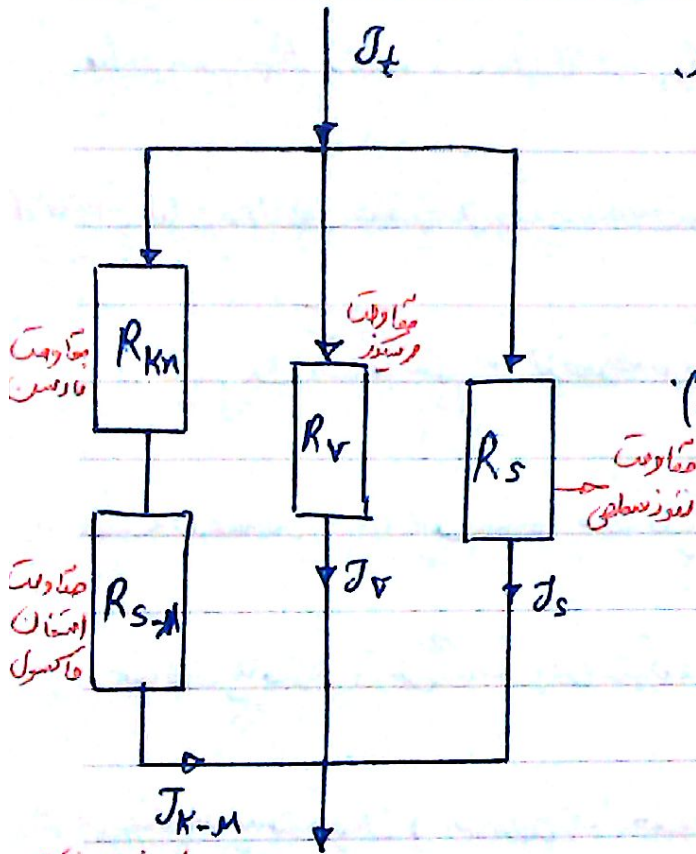 J_t
R_Kn
مقاومت
نادسن
مقاومت
ویسکوز
R_v
R_s
مقاومت
نفوذ سطحی
R_S-M
مقاومت
استفان
ماکسول
J_v
J_s
J_K-M